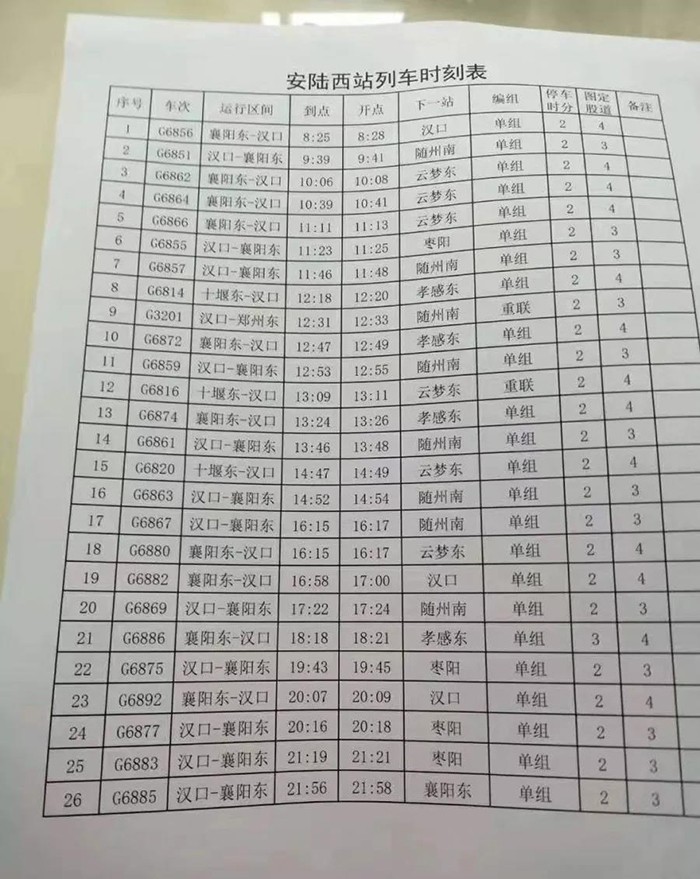 安陆西站列车时刻表
序号 车次 运行区间 到点 开点 下一站 编组 停车时分 图定股道 备注
1 G6856 襄阳东-汉口 8:25 8:28 汉口 单组 2 4
2 G6851 汉口-襄阳东 9:39 9:41 随州南 单组 2 3
3 G6862 襄阳东-汉口 10:06 10:08 云梦东 单组 2 4
4 G6864 襄阳东-汉口 10:39 10:41 云梦东 单组 2 4
5 G6866 襄阳东-汉口 11:11 11:13 云梦东 单组 2 4
6 G6855 汉口-襄阳东 11:23 11:25 枣阳 单组 2 3
7 G6857 汉口-襄阳东 11:46 11:48 随州南 单组 2 3
8 G6814 十堰东-汉口 12:18 12:20 孝感东 单组 2 4
9 G3201 汉口-郑州东 12:31 12:33 随州南 重联 2 3
10 G6872 襄阳东-汉口 12:47 12:49 孝感东 单组 2 4
11 G6859 汉口-襄阳东 12:53 12:55 随州南 单组 2 3
12 G6816 十堰东-汉口 13:09 13:11 云梦东 重联 2 4
13 G6874 襄阳东-汉口 13:24 13:26 孝感东 单组 2 4
14 G6861 汉口-襄阳东 13:46 13:48 随州南 单组 2 3
15 G6820 十堰东-汉口 14:47 14:49 云梦东 单组 2 4
16 G6863 汉口-襄阳东 14:52 14:54 随州南 单组 2 3
17 G6867 汉口-襄阳东 16:15 16:17 随州南 单组 2 3
18 G6880 襄阳东-汉口 16:15 16:17 云梦东 单组 2 4
19 G6882 襄阳东-汉口 16:58 17:00 汉口 单组 2 4
20 G6869 汉口-襄阳东 17:22 17:24 随州南 单组 2 3
21 G6886 襄阳东-汉口 18:18 18:21 孝感东 单组 3 4
22 G6875 汉口-襄阳东 19:43 19:45 枣阳 单组 2 3
23 G6892 襄阳东-汉口 20:07 20:09 汉口 单组 2 4
24 G6877 汉口-襄阳东 20:16 20:18 枣阳 单组 2 3
25 G6883 汉口-襄阳东 21:19 21:21 枣阳 单组 2 3
26 G6885 汉口-襄阳东 21:56 21:58 襄阳东 单组 2 3